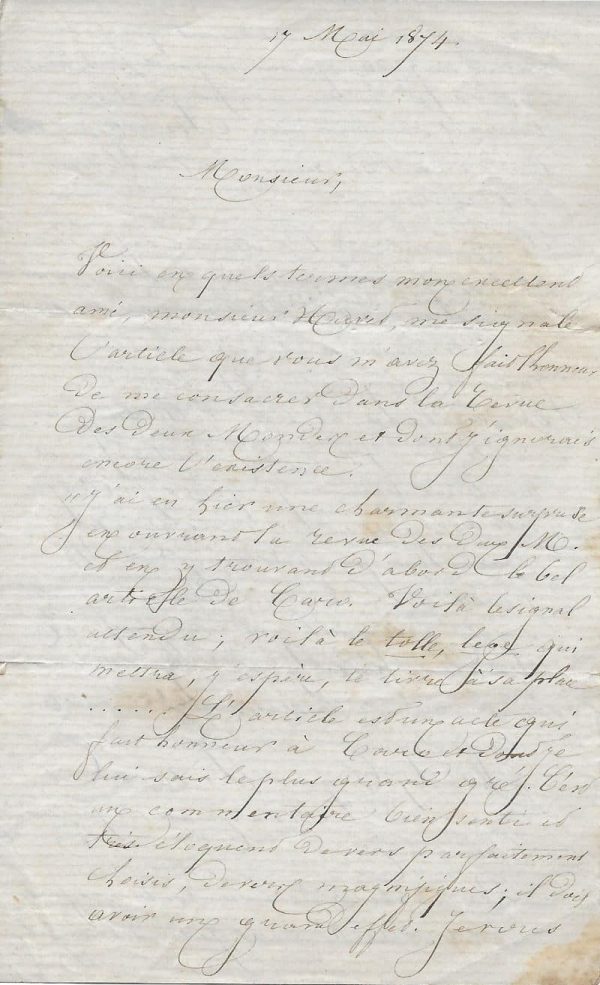 17 Mai 1874.
Monsieur,
Voici en quels termes mon excellent
ami, monsieur Havet, me signale
l'article que vous m'avez fait l'honneur
de me consacrer dans la Revue
des deux Mondes et dont j'ignorais
encore l'existence.
"J'ai eu hier une charmante surprise
en ouvrant la revue des deux M.
et en y trouvant d'abord le bel
article de Caro. Voilà le signal
attendu; voilà le tolle, lege qui
mettra, j'espère, le livre à sa place
...... L'article est un acte qui
fait honneur à Caro et dont je
lui sais le plus grand gré. C'est
un commentaire bien senti et
très éloquent de vers parfaitement
choisis, de vers magnifiques; il doit
avoir un grand effet. Je vous